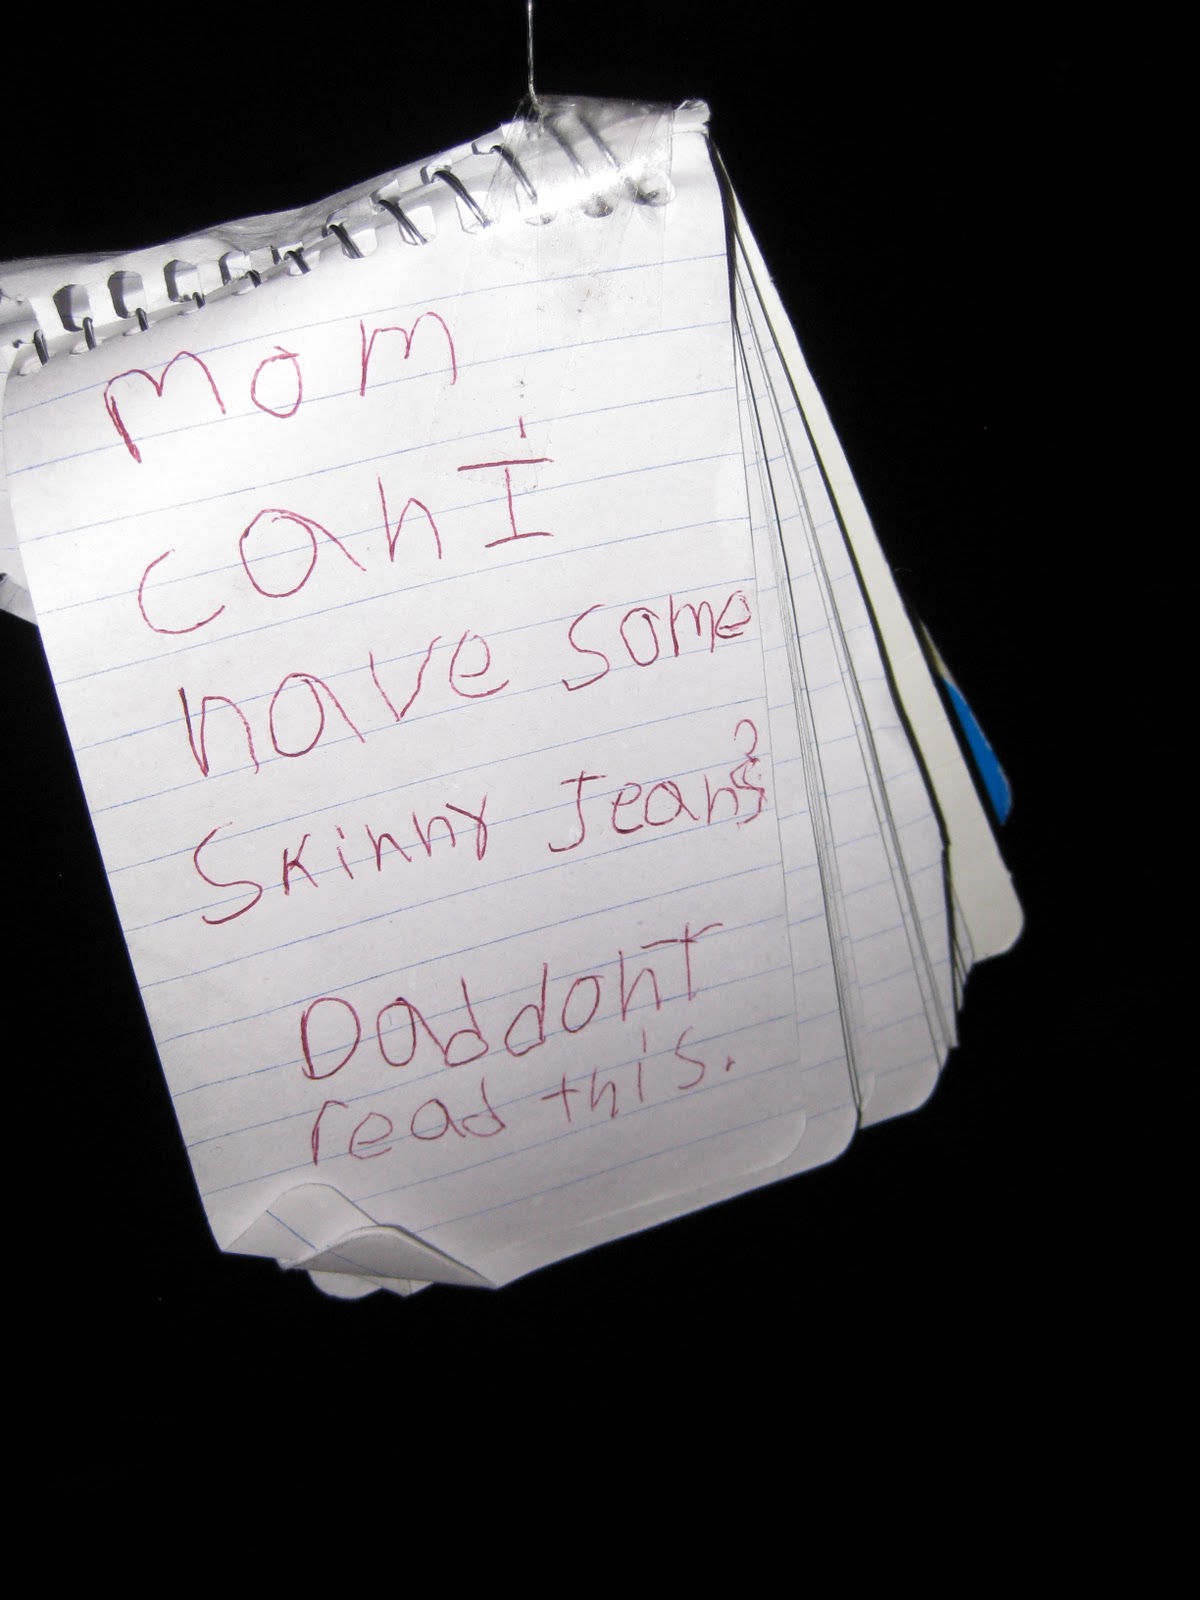 mom
can I
have some
Skinny Jeans?
Dad dont
read this.